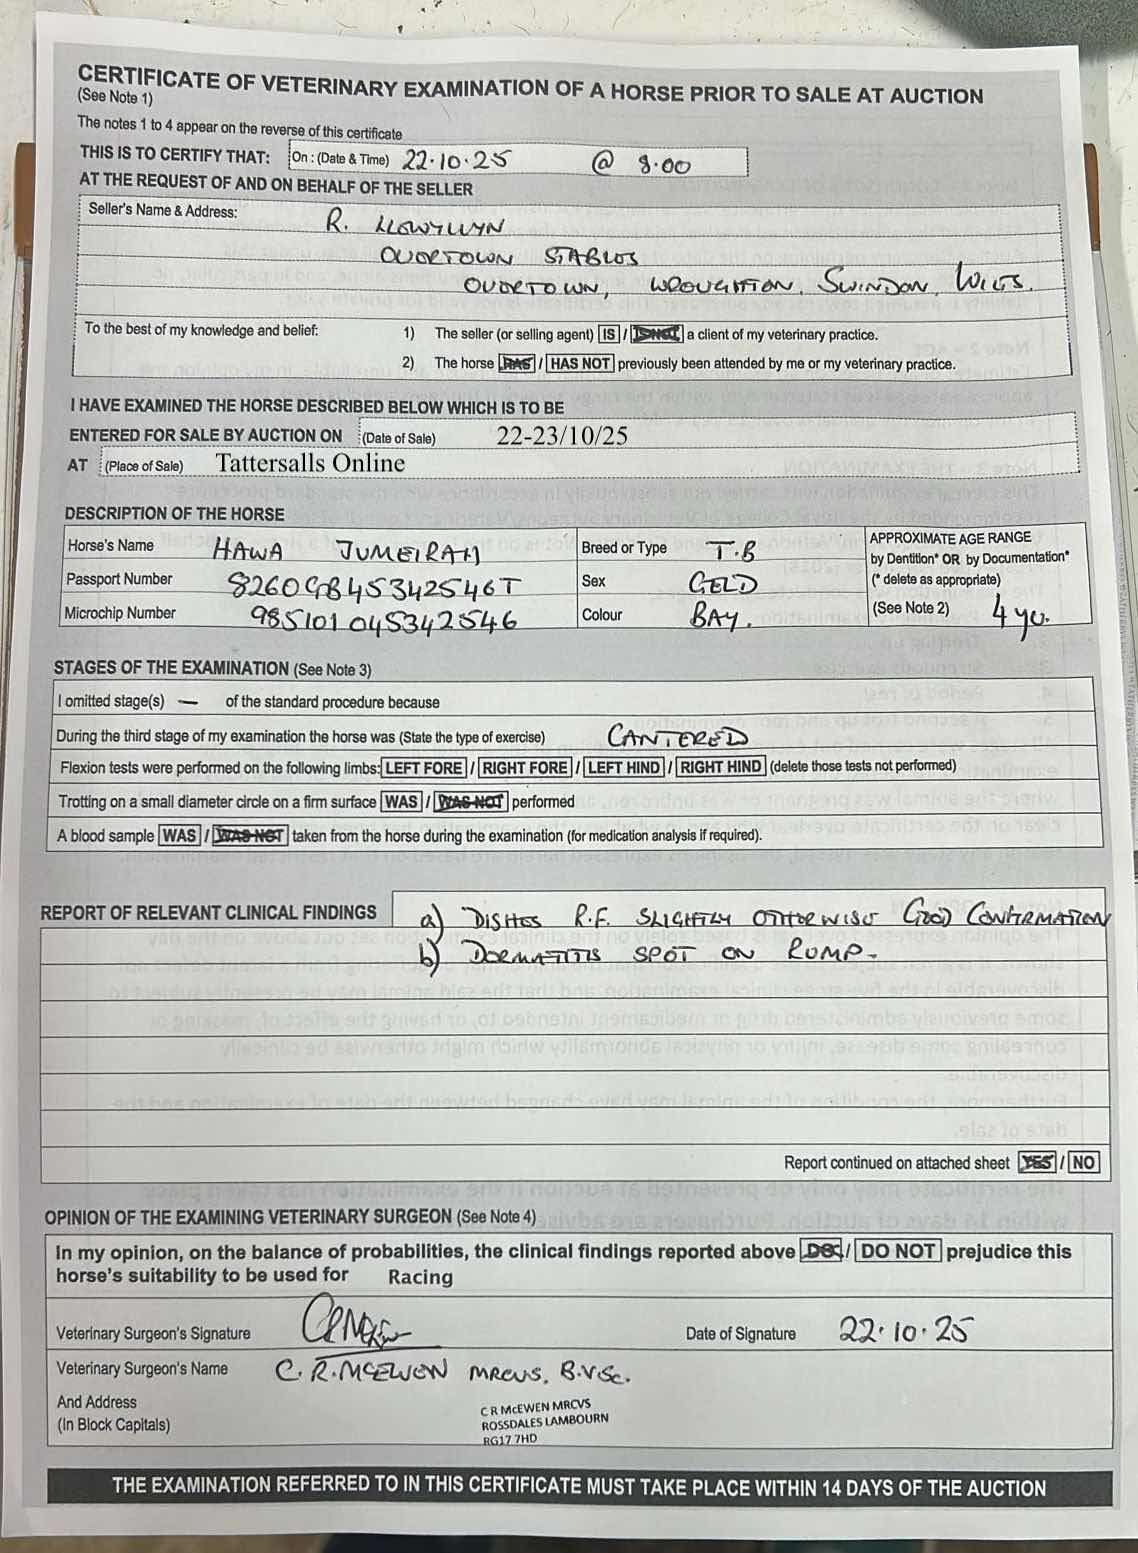 CERTIFICATE OF VETERINARY EXAMINATION OF A HORSE PRIOR TO SALE AT AUCTION
(See Note 1)
The notes 1 to 4 appear on the reverse of this certificate
THIS IS TO CERTIFY THAT: On : (Date & Time) 22·10·25 @ 8·00
AT THE REQUEST OF AND ON BEHALF OF THE SELLER
Seller's Name & Address: R. LLEWYLLYN
OVERTOWN STABLES
OVERTOWN, WROUGHTON, SWINDON, WILTS.
To the best of my knowledge and belief: 1) The seller (or selling agent) IS / IS NOT a client of my veterinary practice.
2) The horse HAS / HAS NOT previously been attended by me or my veterinary practice.
I HAVE EXAMINED THE HORSE DESCRIBED BELOW WHICH IS TO BE
ENTERED FOR SALE BY AUCTION ON (Date of Sale) 22-23/10/25
AT (Place of Sale) Tattersalls Online
DESCRIPTION OF THE HORSE
Horse's Name HAWA JUMEIRAH Breed or Type T.B APPROXIMATE AGE RANGE
by Dentition* OR by Documentation*
Passport Number 8260GB45342546T Sex GELD (* delete as appropriate)
Microchip Number 985101045342546 Colour BAY. (See Note 2) 4 yo.
STAGES OF THE EXAMINATION (See Note 3)
I omitted stage(s) — of the standard procedure because
During the third stage of my examination the horse was (State the type of exercise) CANTERED
Flexion tests were performed on the following limbs: LEFT FORE / RIGHT FORE / LEFT HIND / RIGHT HIND (delete those tests not performed)
Trotting on a small diameter circle on a firm surface WAS / WAS NOT performed
A blood sample WAS / WAS NOT taken from the horse during the examination (for medication analysis if required).
REPORT OF RELEVANT CLINICAL FINDINGS a) DISHES R.F. SLIGHTLY OTHERWISE GOOD CONFIRMATION
b) DERMATITIS SPOT ON RUMP.
Report continued on attached sheet YES / NO
OPINION OF THE EXAMINING VETERINARY SURGEON (See Note 4)
In my opinion, on the balance of probabilities, the clinical findings reported above DO / DO NOT prejudice this
horse's suitability to be used for Racing
Veterinary Surgeon's Signature Date of Signature 22·10·25
Veterinary Surgeon's Name C. R. MCEWEN MRCVS, B.V.Sc.
And Address
(In Block Capitals)
C R McEWEN MRCVS
ROSSDALES LAMBOURN
RG17 7HD
THE EXAMINATION REFERRED TO IN THIS CERTIFICATE MUST TAKE PLACE WITHIN 14 DAYS OF THE AUCTION